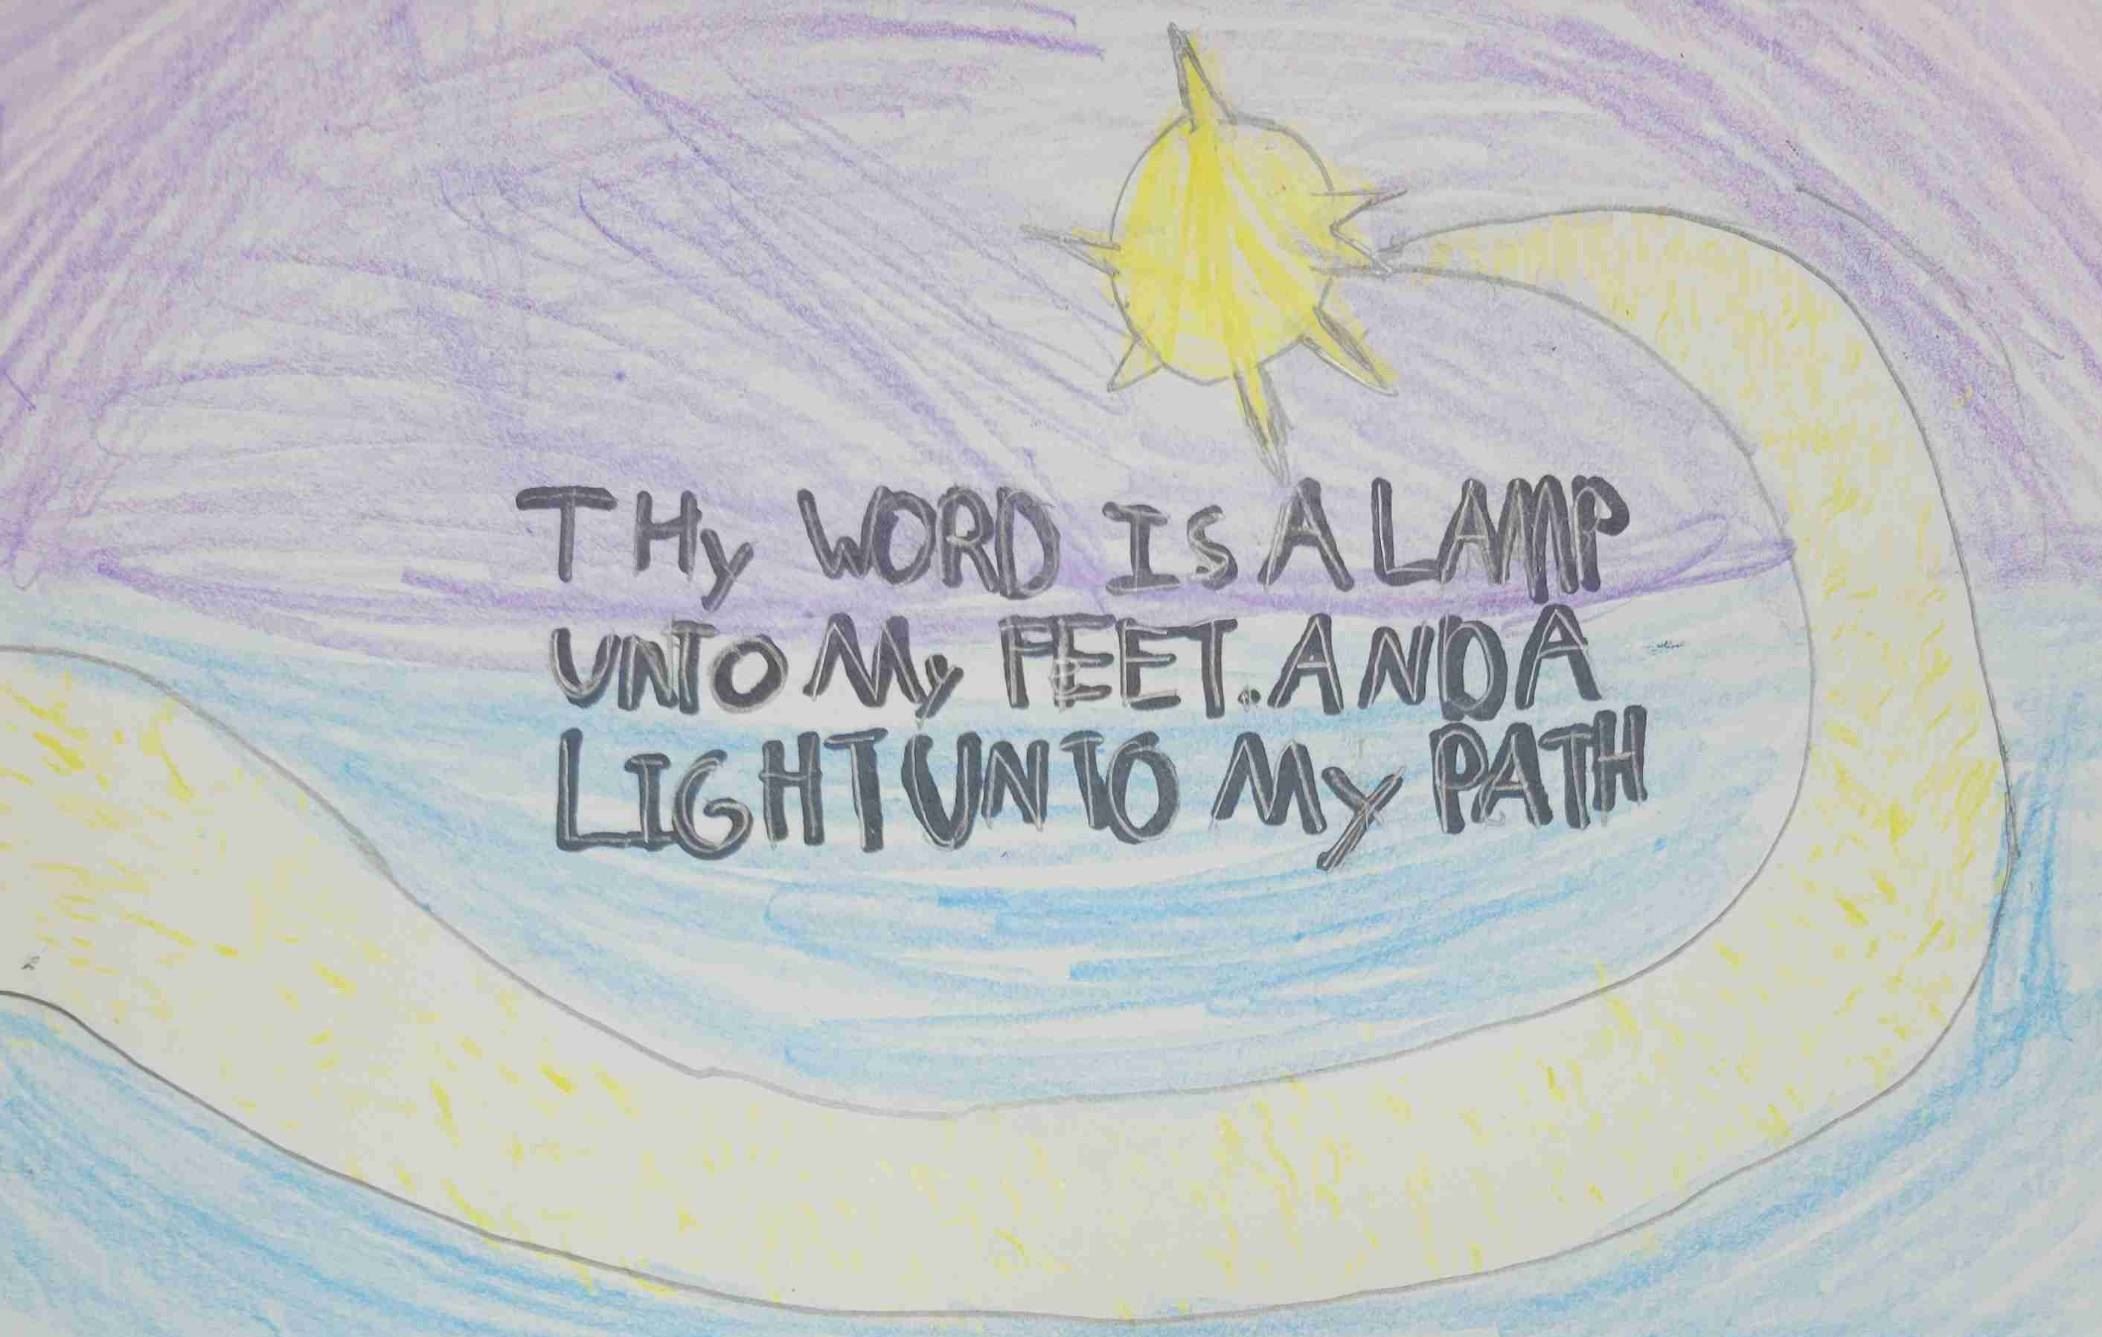 THy WORD IS A LAMP
UNTO My FEET. AND A
LIGHT UNTO My PATH